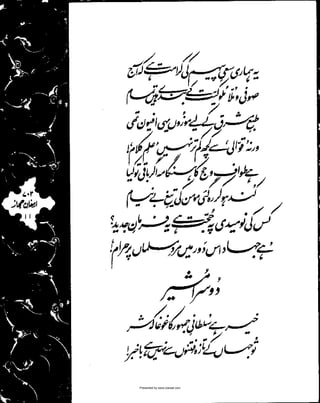 یہ ہماری سعیِ پیہم کی کرامت ہے کہ آج
صوفی و مُلّا ملوکیّت کے بندے ہیں تمام
طبعِ مشرق کے لیے موزوں یہی افیون تھی
ورنہ قوّالی سے کچھ کم تر نہیں علمِ کلام!
ہے طواف و حج کا ہنگامہ اگر باقی تو کیا
کند ہو کر رہ گئی مومن کی تیغِ بے نیام
کس کی نومیدی پہ حجت ہے یہ فرمانِ جدید؟
ہے جہاد اس دور میں مردِ مسلماں پر حرام!
دوسرا مشیر
خیر ہے سلطانیِ جمہور کا غوغا کہ شر
تو جہاں کے تازہ فتنوں سے نہیں ہے باخبر!
۷۰۳
ارمغانِ حجاز
۱۱
Presented by www.ziaraat.com